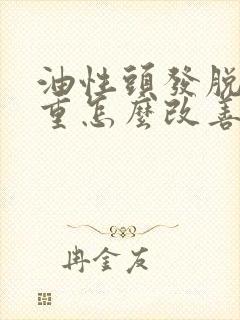 油性頭發脫
重怎麼改善
冉金友